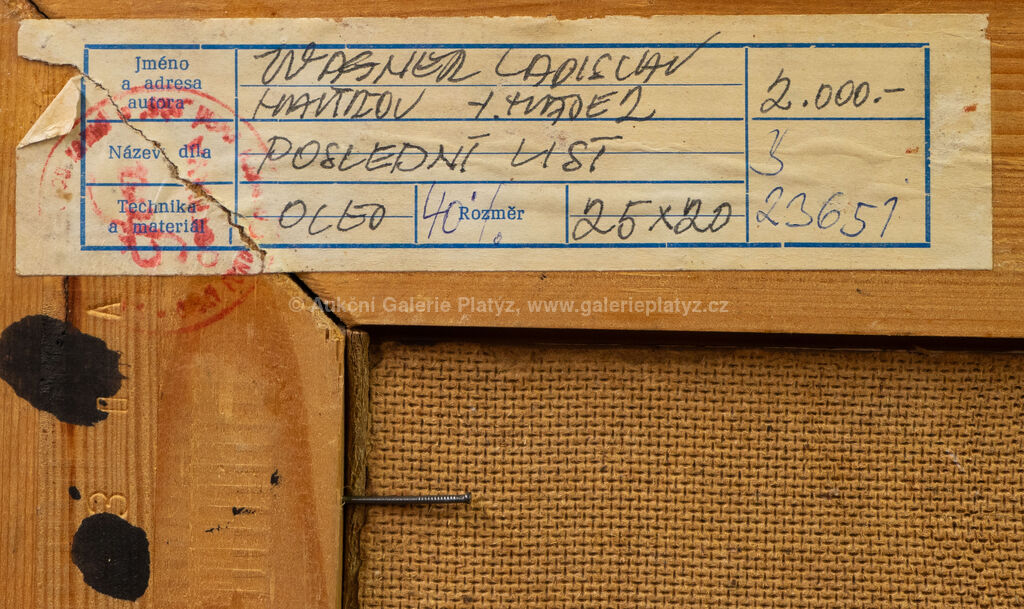 Jméno
a adresa
autora
WAGNER LADISLAV
2.000.-
Název díla
POSLEDNÍ LIST
3
Technika
a materiál
OLEO
40%
Rozměr
25x20
23651
© Aukční Galerie Platýz, www.galerieplatyz.cz